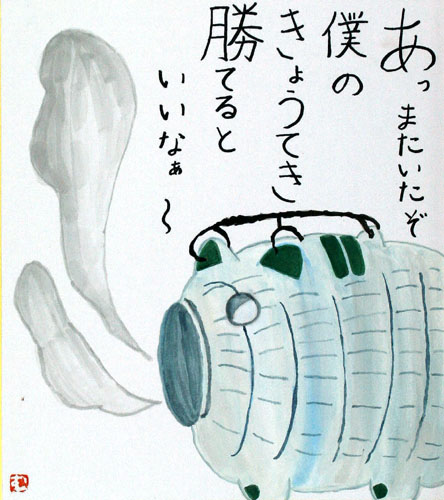 あっまたいたぞ
僕の
きょうてき
勝てると
いいなぁ〜